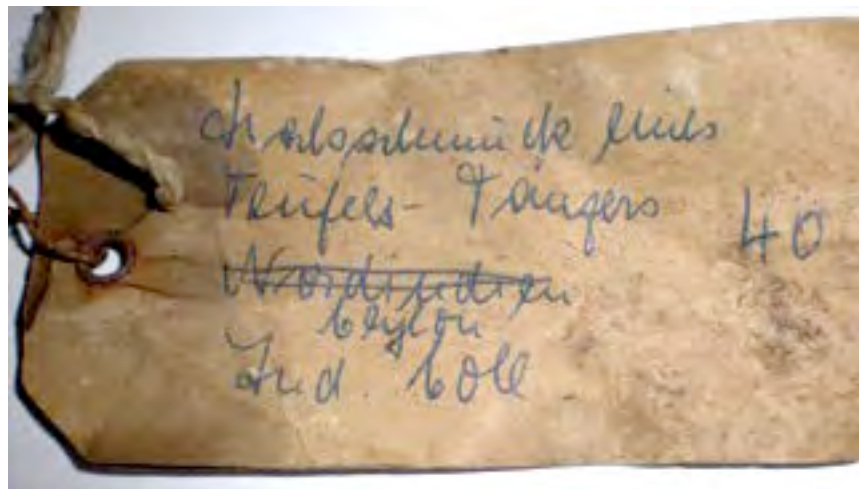 Halsschmuck eines
Teufels-Tänzers
40
Nordindien
Ceylon
Ind. Coll.